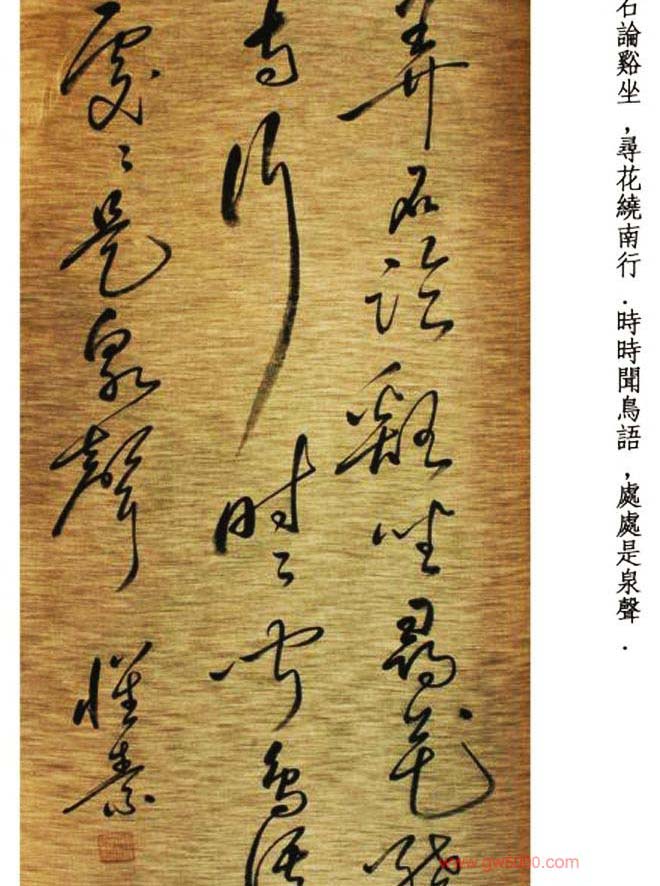 石論谿坐，尋花繞南行．時時聞鳥語，處處是泉聲．
弄石論谿坐尋花繞
南行時〻聞鳥語
處〻是泉聲
懷素